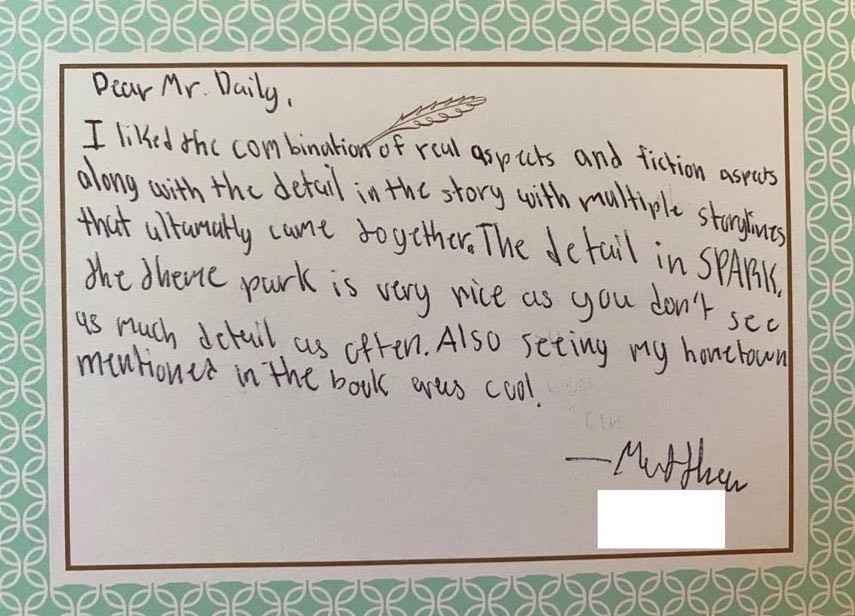 Dear Mr. Daily,
I liked the combination of real aspects and fiction aspects
along with the detail in the story with multiple storylines
that ultamatly came together. The detail in SPARK,
the theme park is very nice as you don't see
as much detail as often. Also seeing my hometown
mentioned in the book was cool.
—Matthew